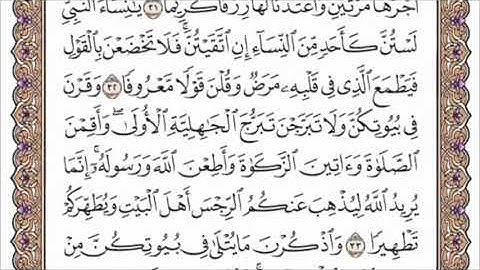 أَجْرَهَا مَرَّتَيْنِ وَأَعْتَدْنَا لَهَا رِزْقًا كَرِيمًا ٣١ يَٰنِسَآءَ ٱلنَّبِيِّ
لَسْتُنَّ كَأَحَدٍ مِّنَ ٱلنِّسَآءِ إِنِ ٱتَّقَيْتُنَّ فَلَا تَخْضَعْنَ بِٱلْقَوْلِ
فَيَطْمَعَ ٱلَّذِى فِى قَلْبِهِۦ مَرَضٌ وَقُلْنَ قَوْلًا مَّعْرُوفًا ٣٢ وَقَرْنَ
فِى بُيُوتِكُنَّ وَلَا تَبَرَّجْنَ تَبَرُّجَ ٱلْجَٰهِلِيَّةِ ٱلْأُولَىٰ ۖ وَأَقِمْنَ
ٱلصَّلَوٰةَ وَءَاتِينَ ٱلزَّكَوٰةَ وَأَطِعْنَ ٱللَّهَ وَرَسُولَهُۥٓ ۚ إِنَّمَا
يُرِيدُ ٱللَّهُ لِيُذْهِبَ عَنكُمُ ٱلرِّجْسَ أَهْلَ ٱلْبَيْتِ وَيُطَهِّرَكُمْ
تَطْهِيرًا ٣٣ وَٱذْكُرْنَ مَا يُتْلَىٰ فِى بُيُوتِكُنَّ مِنْ